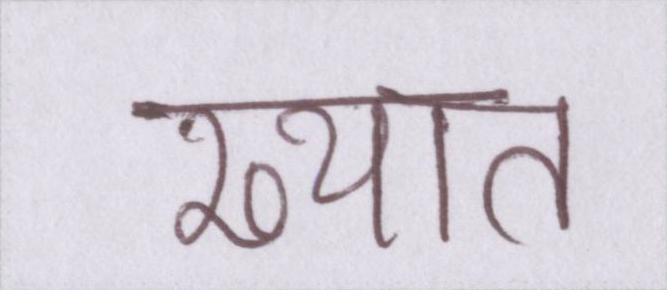 ख्यात